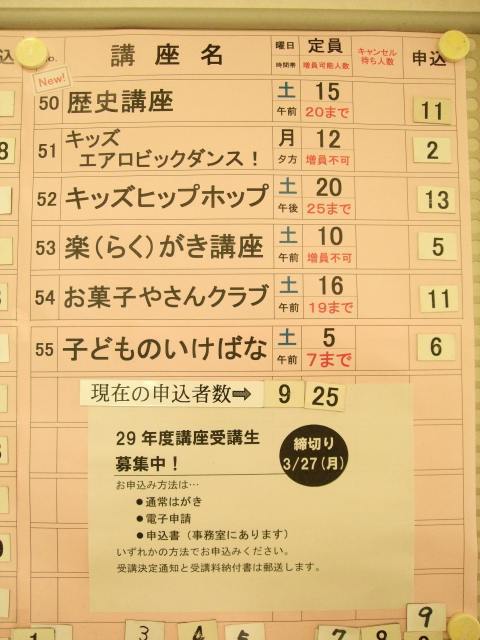 込 No. 講座名 曜日 時間帯 定員 増員可能人数 キャンセル待ち人数 申込
New!
50 歴史講座 土 午前 15 20まで 11
8
51 キッズ エアロビックダンス！ 月 夕方 12 増員不可 2
52 キッズヒップホップ 土 午後 20 25まで 13
53 楽(らく)がき講座 土 午前 10 増員不可 5
54 お菓子やさんクラブ 土 午前 16 19まで 11
55 子どものいけばな 土 午前 5 7まで 6
現在の申込者数⇨ 9 25
29年度講座受講生
募集中！
締切り
3/27(月)
お申込み方法は…
●通常はがき
●電子申請
●申込書（事務室にあります）
いずれかの方法でお申込みください。
受講決定通知と受講料納付書は郵送します。
9
1 3 4 5 7 8